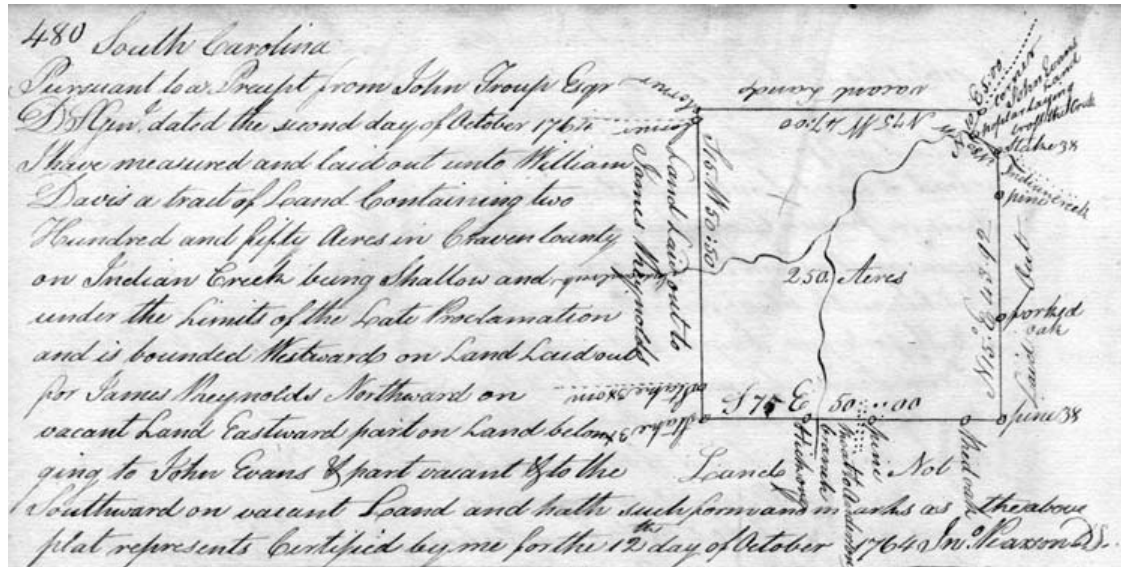 480 South Carolina
Pursuant to a Precept from John Troup Esqr
D S Gnl. dated the second day of October 1764
I have measured and laid out unto William
Davis a tract of Land Containing two
Hundred and fifty Acres in Craven County
on Indian Creek being Shallow and
under the Limits of the Late Proclamation
and is bounded Westward on Land Laid out
for James Mcreynolds Northward on
vacant Land Eastward part on Land belon
ging to John Evans & part vacant & to the
Southward on vacant Land and hath such form and marks as the above
plat represents Certified by me for the 12th day of October 1764 Jno Pearson DS.
vacant Lands
N 75 W 47:00
S 15 W 50:50
Land Laid out to
James Mcreynolds
250. Acres
E 5.00
a corner
John Evans
Land
Stake 38
Indian creek
pine
N 15. E 43.42
forked
oak
Laid Out
pine 38
S 75 E 50 00
Stake 3x
Stake 3x
Hickory
branch
pine
Red oak
Land Not